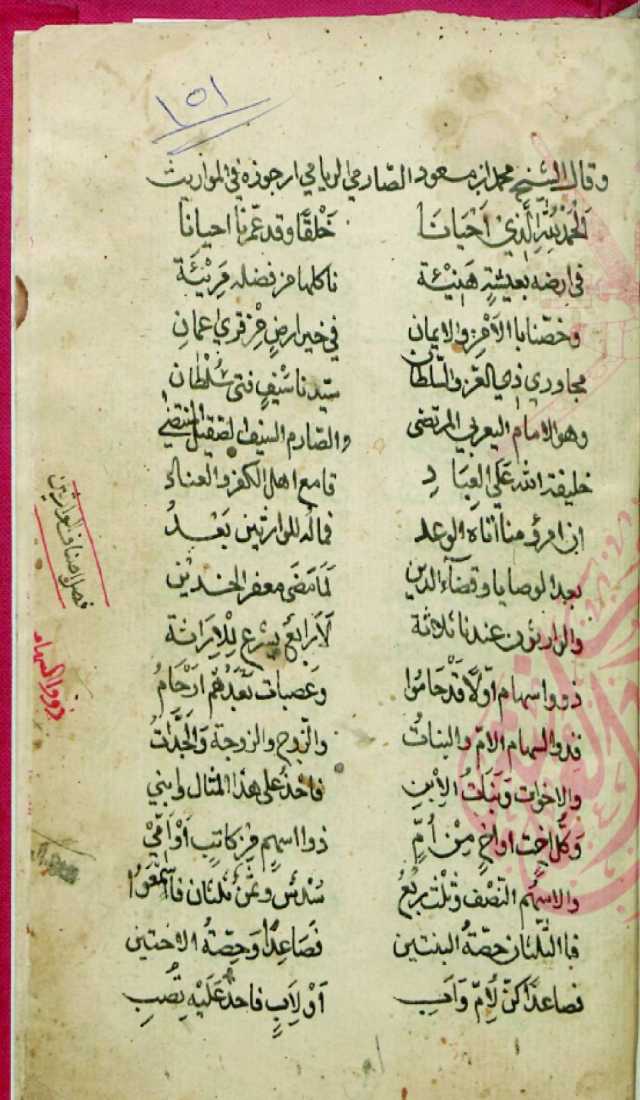 ١٥١
وقال الشيخ محمد بن مسعود الصارمي الريامي ارجوزة في المواريث
الحمد لله الذي احيانا خلقًا وقد عمرنا احيانا
في ارضه بعيشةٍ هنيئة ناكلها من فضله مريئة
وخصنا بالامن والايمان في خير ارضٍ من قرى عمان
مجاوري ذي العز والسلطان سيدنا سيف فتى سلطان
وهو الامام اليعربي المرتضى والصارم السيف الصقيل المنتضى
خليفة الله على العباد قامع اهل الكفر والعناد
ان امرؤ منا اتاه الوعد فماله للوارثين بعد
بعد الوصايا وقضآء الدين لما مضى معفر الخدين
والوارثون عندنا ثلاثة لا رابع يسرع للوراثة
ذووا سهام اولًا قد حاموا وعصبات بعدهم ارحام
فذو السهام الام والبنات والزوج والزوجة والجدات
والاخوات وبنات الابن فاحذ على هذا المثال وابني
وكل اخت او اخٍ من امٍّ ذوا اسهم من كاتبٍ او امّيْ
والاسهم النصف وثلث ربع سدس وثمن ثلثان فاسمعوا
فالثلثان حصة البنتين فصاعدًا وحصة الاختين
فصاعدًا كن لامٍّ واب او لابٍ فاحذ عليه تصب
فصل اصناف الوارثين
ذووا السهام